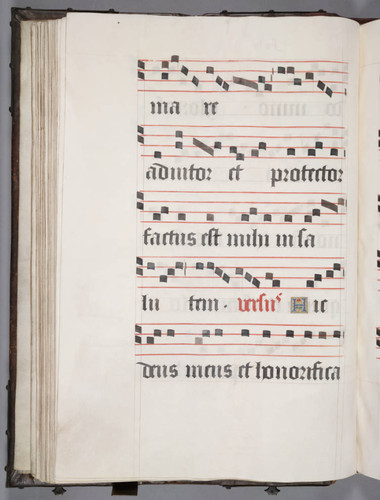 ma re
adiutor et protector
factus est mihi in sa
lu tem. versus Hic
deus meus et honorifica